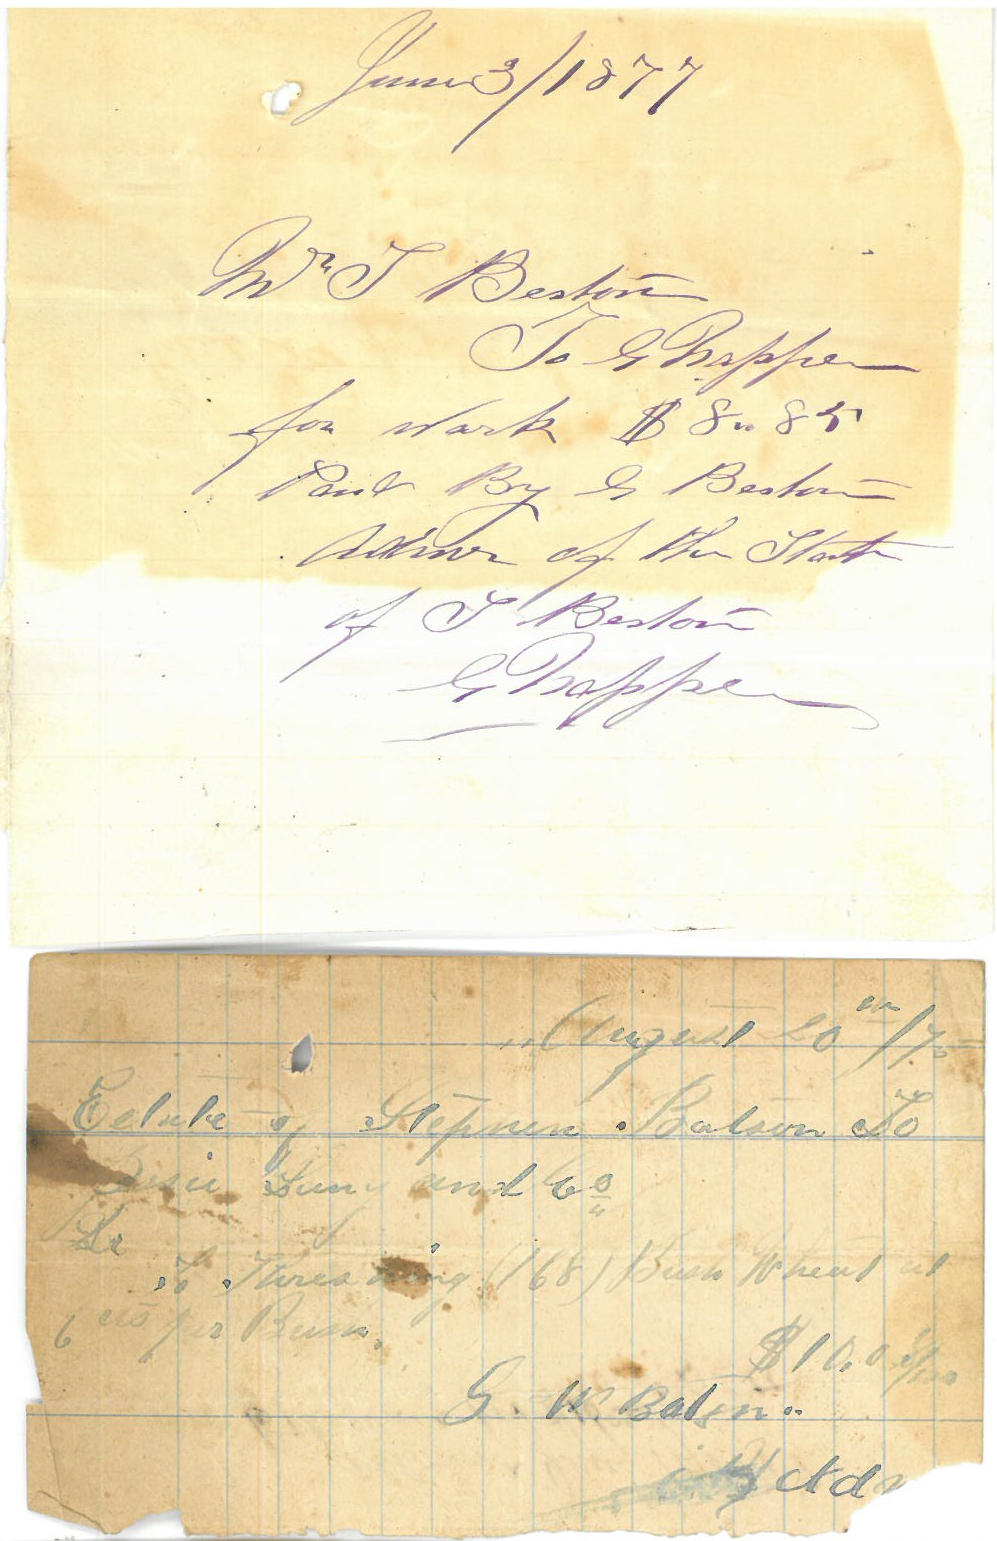 June 3/1877
Mr T Beston
To G Trapper
for work $8.85
Paid By G Beston
Admr of the State
of T Beston
G Trapper
August 20th /7
Estate of Stephen Batson To
and Co
Dr
To Threshing (168) Bush Wheat at
6 cts per Bush.
$10.08/100
G. W. Batson
Adr